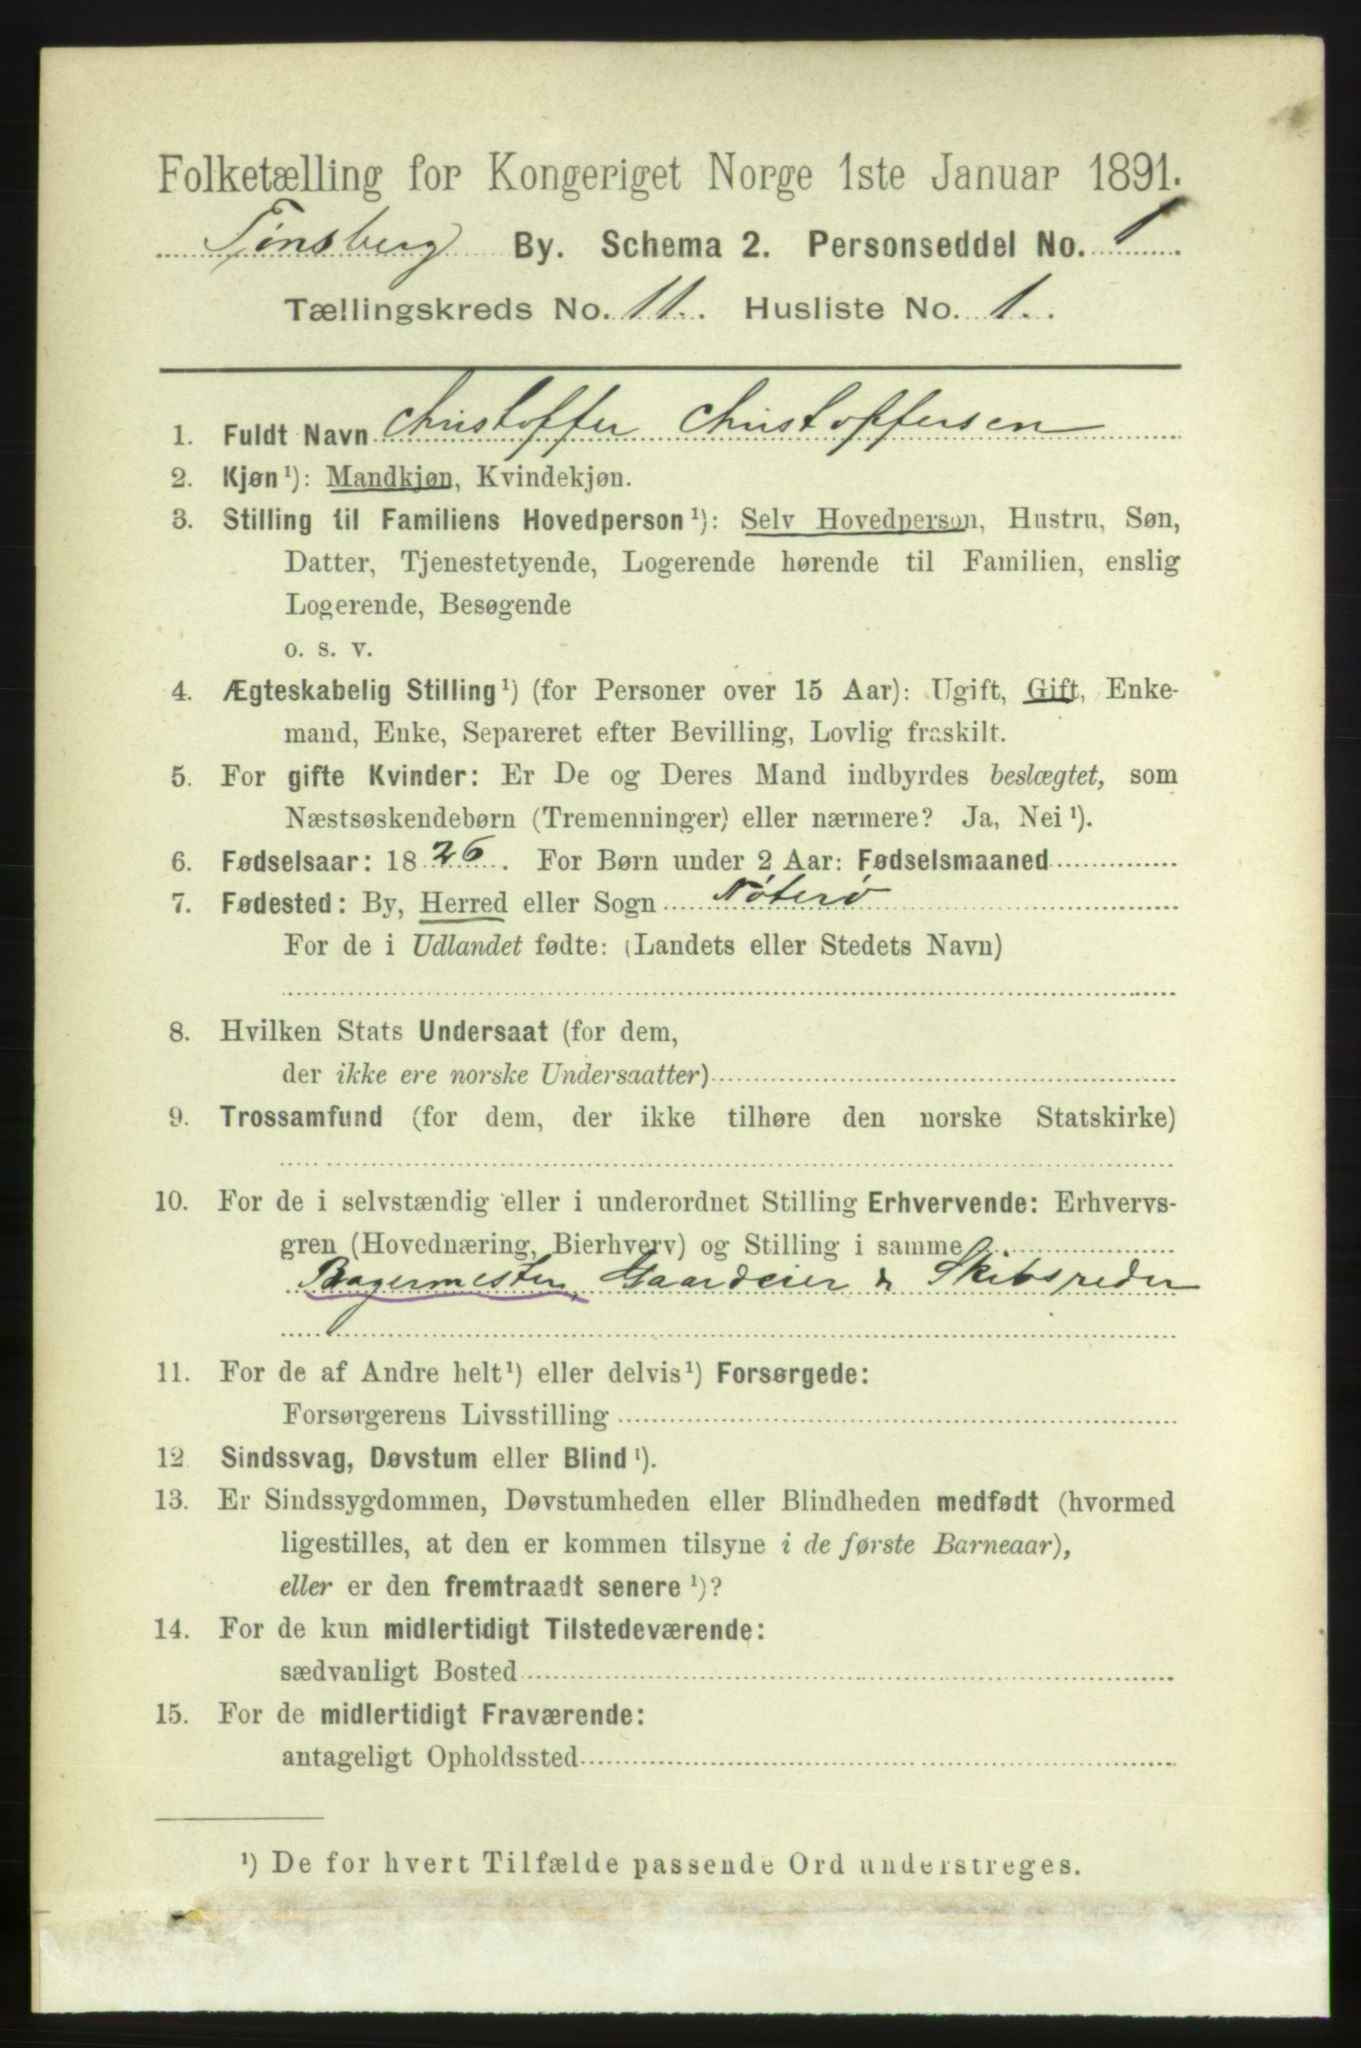 Folketælling for Kongeriget Norge 1ste Januar 1891.
Tønsberg By. Schema 2. Personseddel No. 1
Tællingskreds No. 11. Husliste No. 1.
1. Fuldt Navn Christoffer Christoffersen
2. Kjøn¹): Mandkjøn, Kvindekjøn.
3. Stilling til Familiens Hovedperson¹): Selv Hovedperson, Hustru, Søn,
Datter, Tjenestetyende, Logerende hørende til Familien, enslig
Logerende, Besøgende
o. s. v.
4. Ægteskabelig Stilling¹) (for Personer over 15 Aar): Ugift, Gift, Enke-
mand, Enke, Separeret efter Bevilling, Lovlig fraskilt.
5. For gifte Kvinder: Er De og Deres Mand indbyrdes beslægtet, som
Næstsøskendebørn (Tremenninger) eller nærmere? Ja, Nei¹).
6. Fødselsaar: 1826. For Børn under 2 Aar: Fødselsmaaned
7. Fødested: By, Herred eller Sogn Nøterø
For de i Udlandet fødte: (Landets eller Stedets Navn)
8. Hvilken Stats Undersaat (for dem,
der ikke ere norske Undersaatter)
9. Trossamfund (for dem, der ikke tilhøre den norske Statskirke)
10. For de i selvstændig eller i underordnet Stilling Erhvervende: Erhvervs-
gren (Hovednæring, Bierhverv) og Stilling i samme
Bagermester, Gaardeier & Skibsreder
11. For de af Andre helt¹) eller delvis¹) Forsørgede:
Forsørgerens Livsstilling
12. Sindssvag, Døvstum eller Blind¹).
13. Er Sindssygdommen, Døvstumheden eller Blindheden medfødt (hvormed
ligestilles, at den er kommen tilsyne i de første Barneaar),
eller er den fremtraadt senere¹)?
14. For de kun midlertidigt Tilstedeværende:
sædvanligt Bosted
15. For de midlertidigt Fraværende:
antageligt Opholdssted
¹) De for hvert Tilfælde passende Ord understreges.